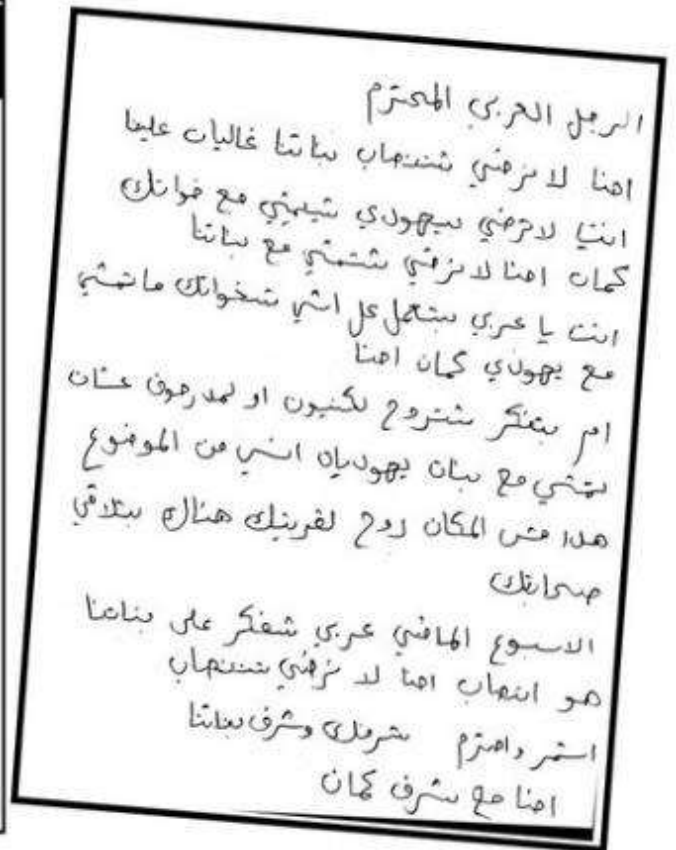 الرجل العربي المحترم
احنا لا نرضي شتنصاب بناتنا غاليات علينا
انت لا ترضي بيهودي شيمشي مع خواتك
كمان احنا لا نرضي شتمشي مع بناتنا
انت يا عربي بتعمل كل اشي شخواتك ما تمشي
مع يهودي كمان احنا
ام بتفكر شتروح لكنيون او لمدرحوف عشان
تمشي مع بنات يهوديات انسي من الموضوع
هدا مش المكان روح لقريتك هناك بتلاقي
صحابتك
الاسبوع الماضي عربي شفكر على بناتنا
هو انصاب احنا لا نرضي شتنصاب
استمر واحترم شرفك وشرف بناتنا
احنا مع شرف كمان